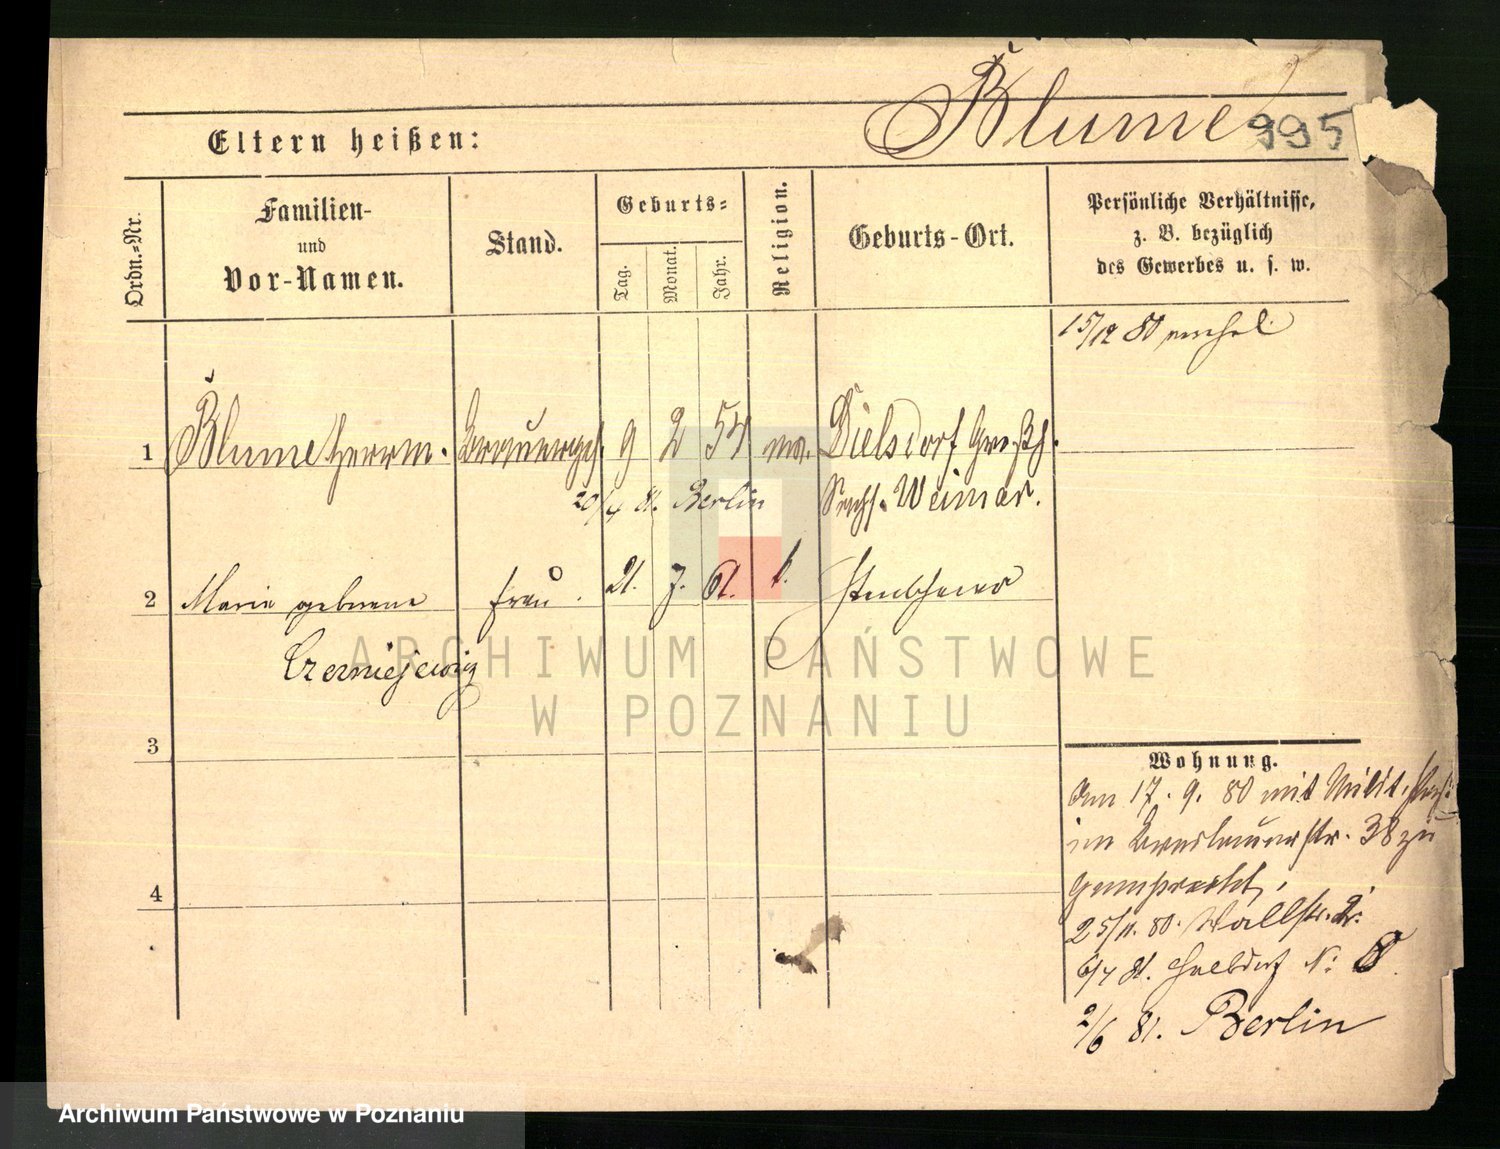 Blume
995
Eltern heißen:
Ordn.=Nr.
Familien-
und
Vor-Namen.
Stand.
Geburts=
Tag.
Monat.
Jahr.
Religion.
Geburts-Ort.
Persönliche Verhältnisse,
z. B. bezüglich
des Gewerbes u. s. w.
15/12 80
1 Blume Herrm. Brauerges. 9 2 54 Dielsdorf Großh.
20/4 81. Berlin Sachs. Weimar.
2 Marie geborene Frau. 21. 7. 61. k.
Czerniejewicz
ARCHIWUM PAŃSTWOWE
W POZNANIU
3
Wohnung.
Am 17. 9. 80 mit Milit.
im Breslauerstr. 38 zu
4
25/11. 80. Wallstr. 2.
6/4 81. Halbdorf N: 8.
2/6 81. Berlin
Archiwum Państwowe w Poznaniu